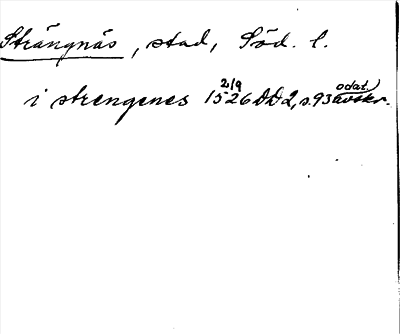 Strängnäs, stad, Söd. l.
i strengenes 2/9 1526 DD 2, s. 93 odat. avskr.